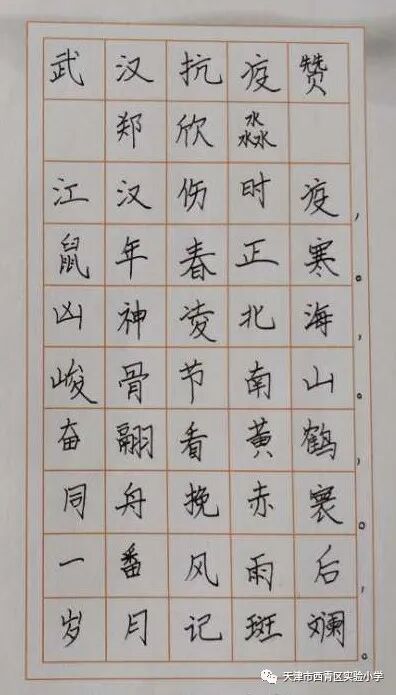 武汉抗疫赞
郑欣淼
江汉伤时疫，
鼠年春正寒。
凶神凌北海，
峻骨节南山。
奋翮看黄鹤，
同舟挽赤寰。
一番风雨后，
岁月记斑斓。
天津市西青区实验小学